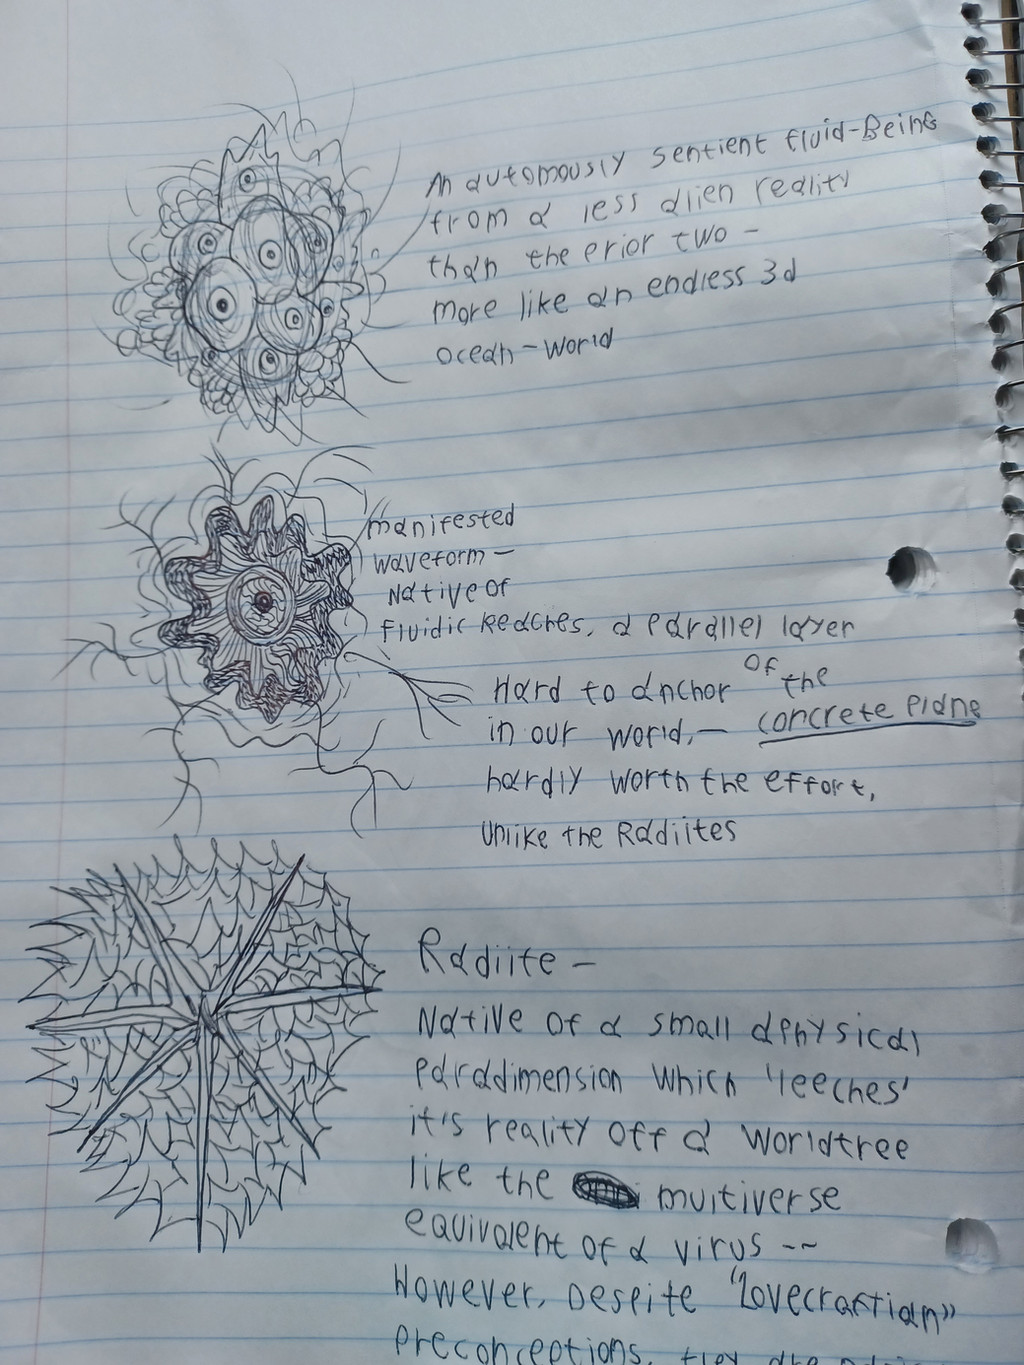 An automously sentient fluid-Being
from a less alien reality
than the prior two -
more like an endless 3d
ocean-world
Manifested
waveform -
Native of
fluidic Reaches, a parallel layer
of the
concrete plane
Hard to anchor
in our world, -
hardly worth the effort,
unlike the Radiites
Radiite -
Native of a small aphysical
paradimension which 'leeches'
it's reality off a worldtree
like the multiverse
equivalent of a virus --
However, Despite "Lovecraftian"
preconceptions, they are